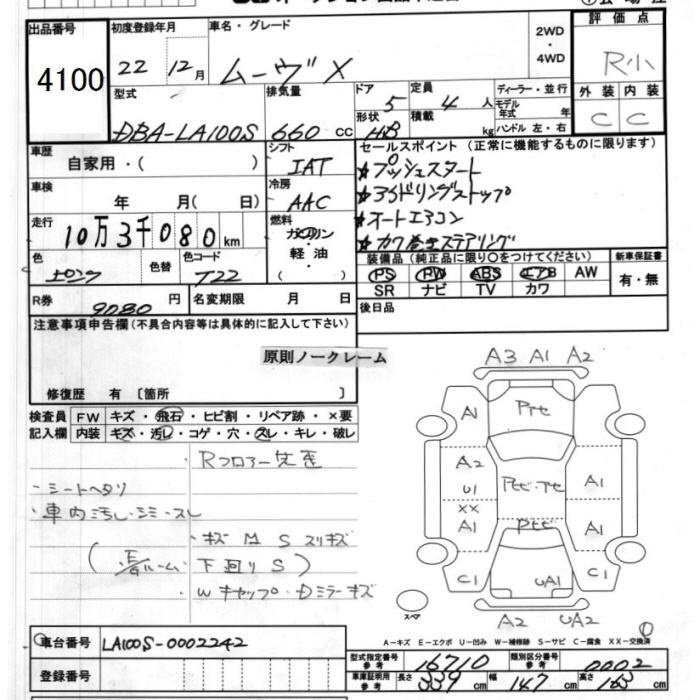 出品番号
4100
初度登録年月
22 12月
車名・グレード
ムーヴ X
2WD
・
4WD
評価点
R小
外装 内装
C C
型式
DBA-LA100S
排気量
660 cc
ドア 5
形状 HB
定員 4 人
積載 kg
ディーラー・並行
モデル年式 年
ハンドル 左・右
車歴
自家用・( )
シフト
IAT
車検
年 月( 日)
冷房
AAC
走行
10万3千080km
燃料
ガソリン
・
軽油
( )
色
色替
色コード
T22
R券
9080 円
名変期限 月 日
セールスポイント (正常に機能するものに限ります)
★プッシュスタート
★アイドリングストップ
★オートエアコン
★カワ巻きステアリング
装備品 (純正品に限り○をつけてください)
PS PW ABS エアB AW
SR ナビ TV カワ
新車保証書
有・無
後日品
注意事項申告欄(不具合内容等は具体的に記入して下さい)
原則ノークレーム
修復歴 有 [箇所 ]
検査員
記入欄
FW キズ・飛石・ヒビ割・リペア跡・×要
内装 キズ・汚レ・コゲ・穴・スレ・キレ・破レ
・Rフロアー交臣
・シートヘタリ
・車内汚し・シミ・スレ
・キズ M S スリキズ
(E/Gルーム・下廻りS)
・Wキャップ・Dミラーキズ
A3 A1 A2
A1
A2
U1
XX
A1
C1
A1
A1
C1
UA1
A2 UA2
スペア
A-キズ E-エクボ U-凹み W-補修跡 S-サビ C-腐食 XX-交換済
車台番号
LA100S-0002242
登録番号
型式指定番号
参考
16710
類別区分番号
参考
0002
車庫証明用
参考
長さ 339cm
幅 147cm
高さ 163cm